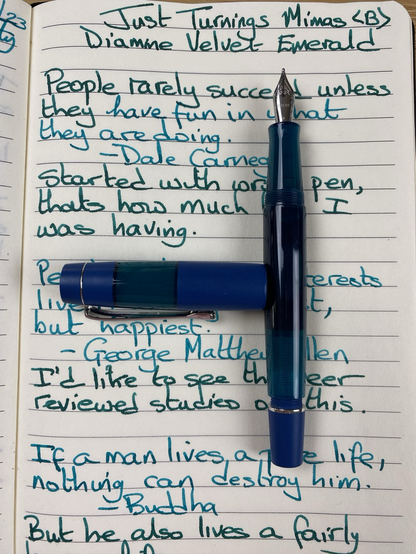 Just Turnings Mimas <B>
Diamine Velvet Emerald
People rarely succeed unless
they have fun in what
they are doing.
-Dale Carneg
Started with pen,
thats how much I
was having.
live
but happiest.
- George Matthew Allen
I'd like to see the
reviewed studies on this.
If a man lives a life,
nothing can destroy him.
-Buddha
But he also lives a fairly